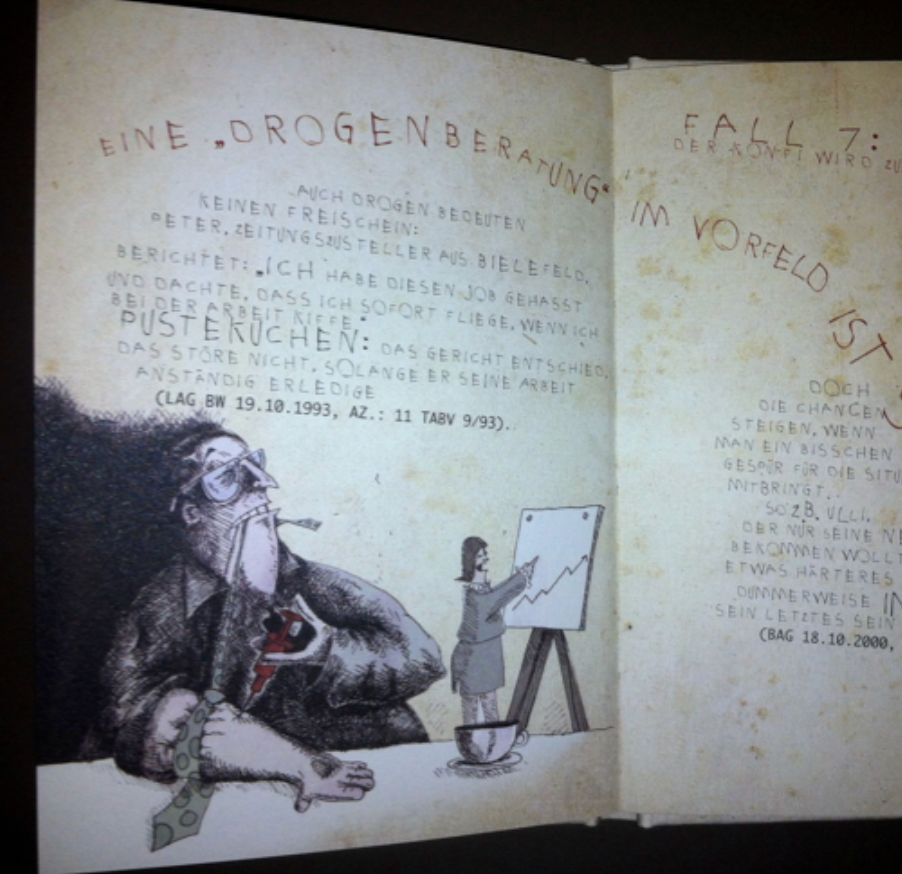 EINE „DROGENBERATUNG“
AUCH DROGEN BEDEUTEN
KEINEN FREISCHEIN:
PETER, ZEITUNGSZUSTELLER AUS BIELEFELD,
BERICHTET: „ICH HABE DIESEN JOB GEHASST
UND DACHTE, DASS ICH SOFORT FLIEGE, WENN ICH
BEI DER ARBEIT KIFFE.“
PUSTEKUCHEN: DAS GERICHT ENTSCHIED,
DAS STÖRE NICHT, SOLANGE ER SEINE ARBEIT
ANSTÄNDIG ERLEDIGE
(LAG BW 19.10.1993, AZ.: 11 TABV 9/93).
FALL 7:
DER KONFI WIRD ZU
IM VORFELD
IST
DOCH
DIE CHANCEN
STEIGEN, WENN
MAN EIN BISSCHEN
GESPÜR FÜR DIE SITU
MITBRINGT.
SO Z.B. ULLI,
DER NUR SEINE NE
BEKOMMEN WOLLT
ETWAS HÄRTERES
DUMMERWEISE IN
SEIN LETZTES SEIN
(BAG 18.10.2000,